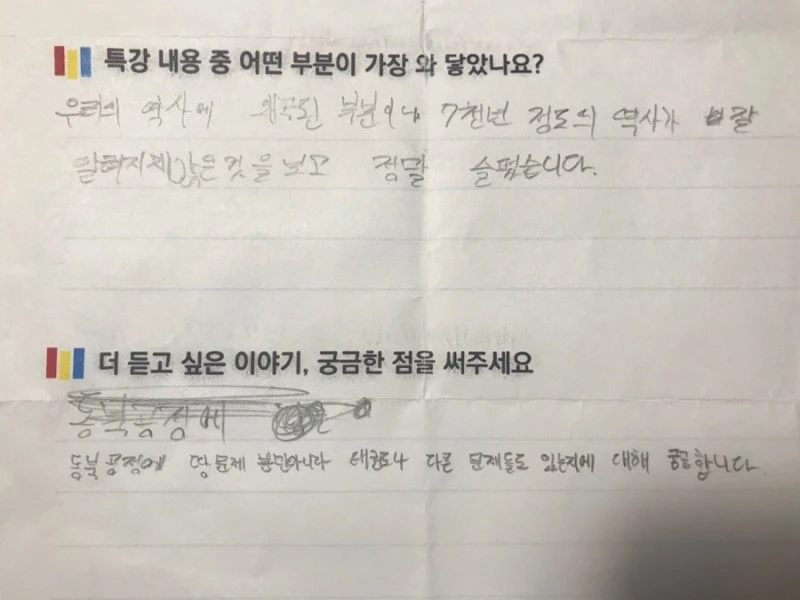 특강 내용 중 어떤 부분이 가장 와 닿았나요?
우리의 역사에 왜곡된 부분이나 7천년 정도의 역사가
알려지지 않은것을 보고 정말 슬펐습니다.
더 듣고 싶은 이야기, 궁금한 점을 써주세요
동북공정에
동북공정에 땅문제 뿐만아니라 태권도나 다른 문제들도 있는지에 대해 궁금합니다.